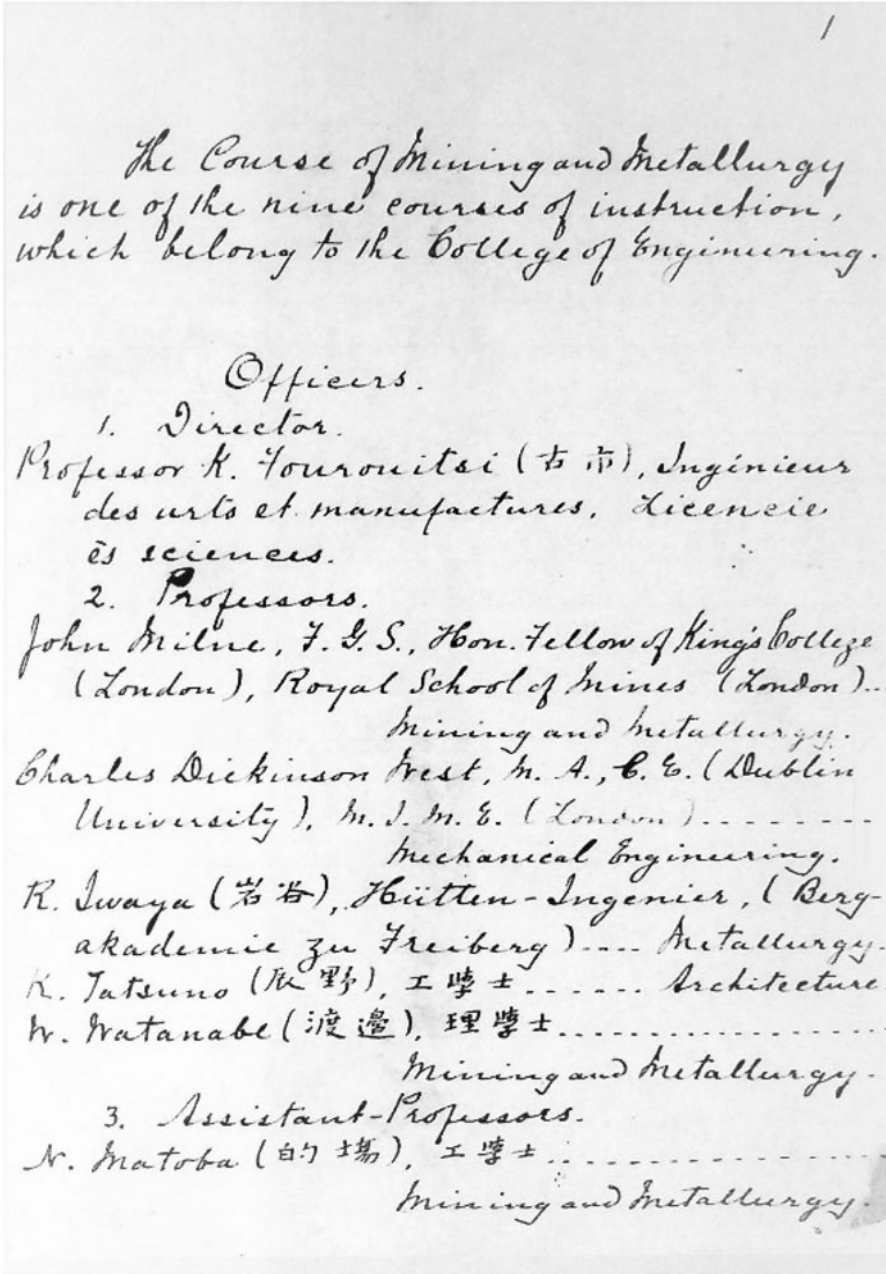 1
The Course of Mining and Metallurgy
is one of the nine courses of instruction,
which belong to the College of Engineering.
Officers.
1. Director.
Professor K. Fourouitsi (古市), Ingénieur
des arts et manufactures, Licencie
ès sciences.
2. Professors.
John Milne, F.G.S., Hon. Fellow of King's College
(London), Royal School of Mines (London)..
Mining and Metallurgy.
Charles Dickinson West, M.A., C.E. (Dublin
University), M.I.M.E. (London).........
Mechanical Engineering.
R. Iwaya (岩谷), Hütten-Ingenier, (Berg-
akademie zu Freiberg).... Metallurgy.
K. Tatsuno (辰野), 工學士...... Architecture
W. Watanabe (渡邊), 理學士..................
Mining and Metallurgy.
3. Assistant-Professors.
N. Matoba (的場), 工學士..................
Mining and Metallurgy.